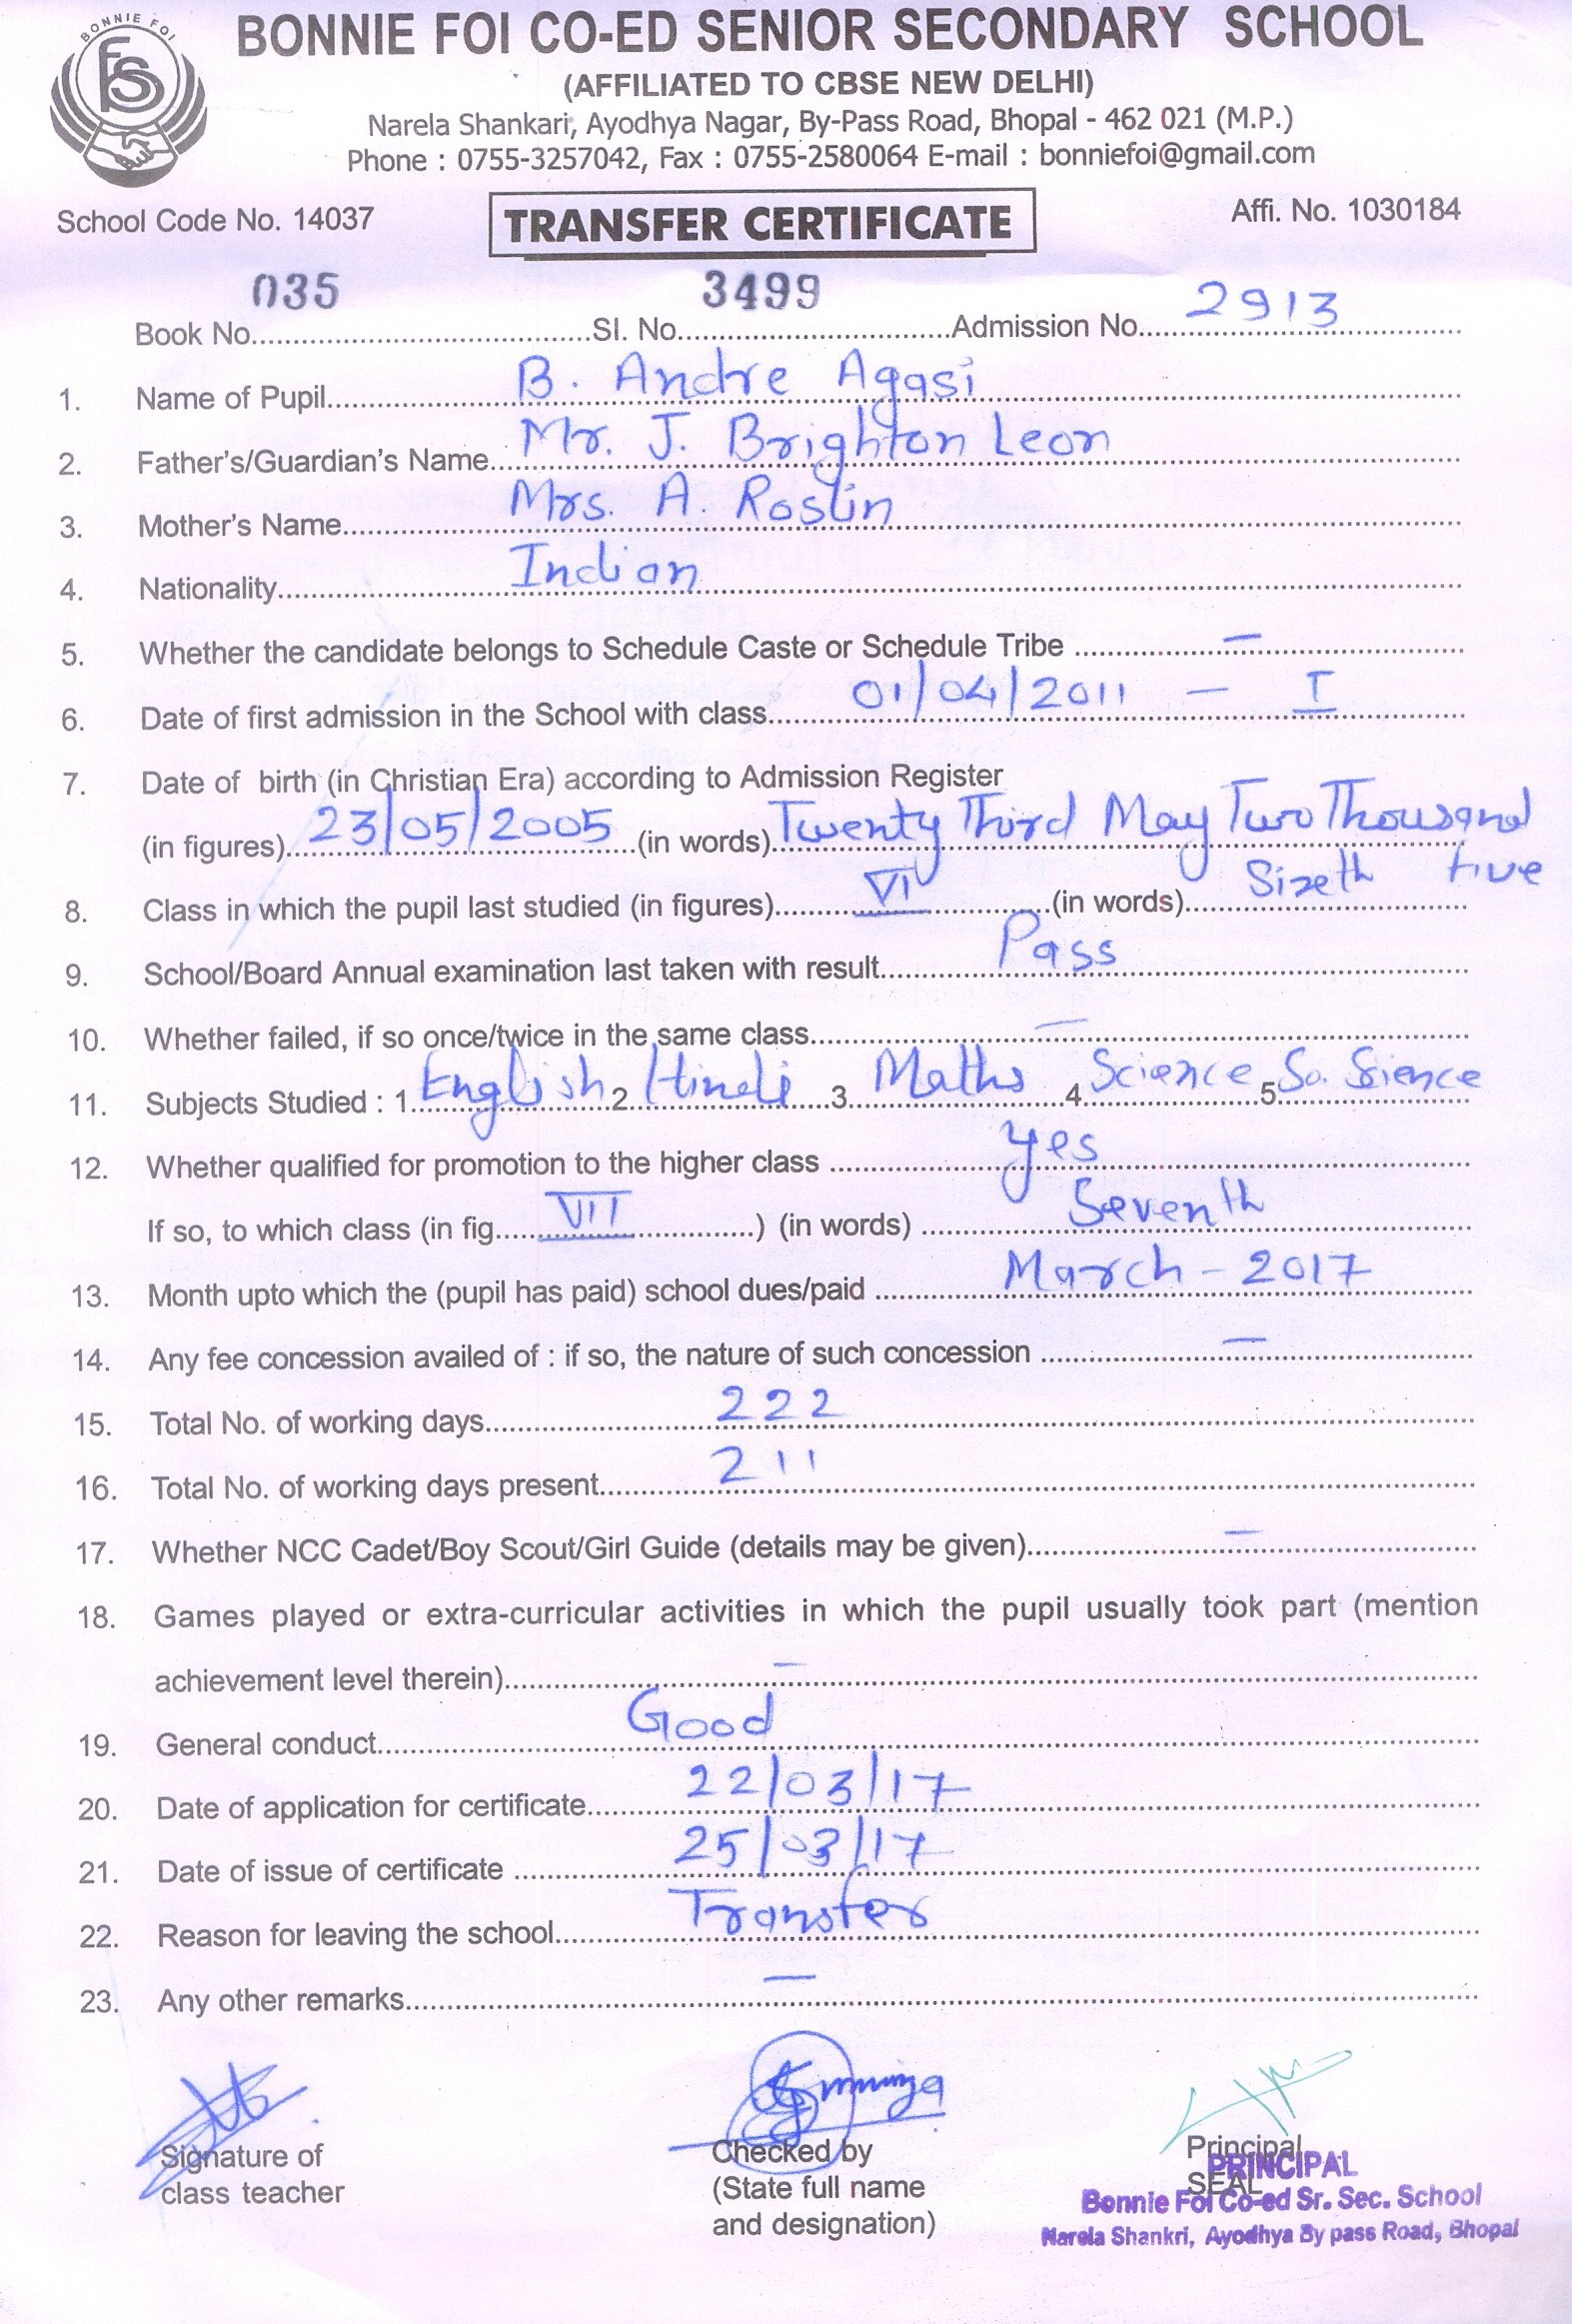 BONNIE FOI
FS
BONNIE FOI CO-ED SENIOR SECONDARY SCHOOL
(AFFILIATED TO CBSE NEW DELHI)
Narela Shankari, Ayodhya Nagar, By-Pass Road, Bhopal - 462 021 (M.P.)
Phone : 0755-3257042, Fax : 0755-2580064 E-mail : bonniefoi@gmail.com
School Code No. 14037 TRANSFER CERTIFICATE Affi. No. 1030184
Book No. 035 Sl. No. 3499 Admission No. 2913
1. Name of Pupil B. Andre Agasi
2. Father's/Guardian's Name Mr. J. Brighton Leon
3. Mother's Name Mrs. A. Roslin
4. Nationality Indian
5. Whether the candidate belongs to Schedule Caste or Schedule Tribe —
6. Date of first admission in the School with class 01/04/2011 — I
7. Date of birth (in Christian Era) according to Admission Register
(in figures) 23/05/2005 (in words) Twenty Third May Two Thousand five
8. Class in which the pupil last studied (in figures) VI (in words) Sixeth
9. School/Board Annual examination last taken with result Pass
10. Whether failed, if so once/twice in the same class —
11. Subjects Studied : 1 English 2 Hindi 3 Maths 4 Science 5 So. Sience
12. Whether qualified for promotion to the higher class yes
If so, to which class (in fig. VII ) (in words) Seventh
13. Month upto which the (pupil has paid) school dues/paid March - 2017
14. Any fee concession availed of : if so, the nature of such concession —
15. Total No. of working days 222
16. Total No. of working days present 211
17. Whether NCC Cadet/Boy Scout/Girl Guide (details may be given) —
18. Games played or extra-curricular activities in which the pupil usually took part (mention
achievement level therein) —
19. General conduct Good
20. Date of application for certificate 22/03/17
21. Date of issue of certificate 25/03/17
22. Reason for leaving the school Transfer
23. Any other remarks —
Signature of
class teacher
Checked by
(State full name
and designation)
Principal
SEAL
PRINCIPAL
Bonnie Foi Co-ed Sr. Sec. School
Narela Shankri, Ayodhya By pass Road, Bhopal